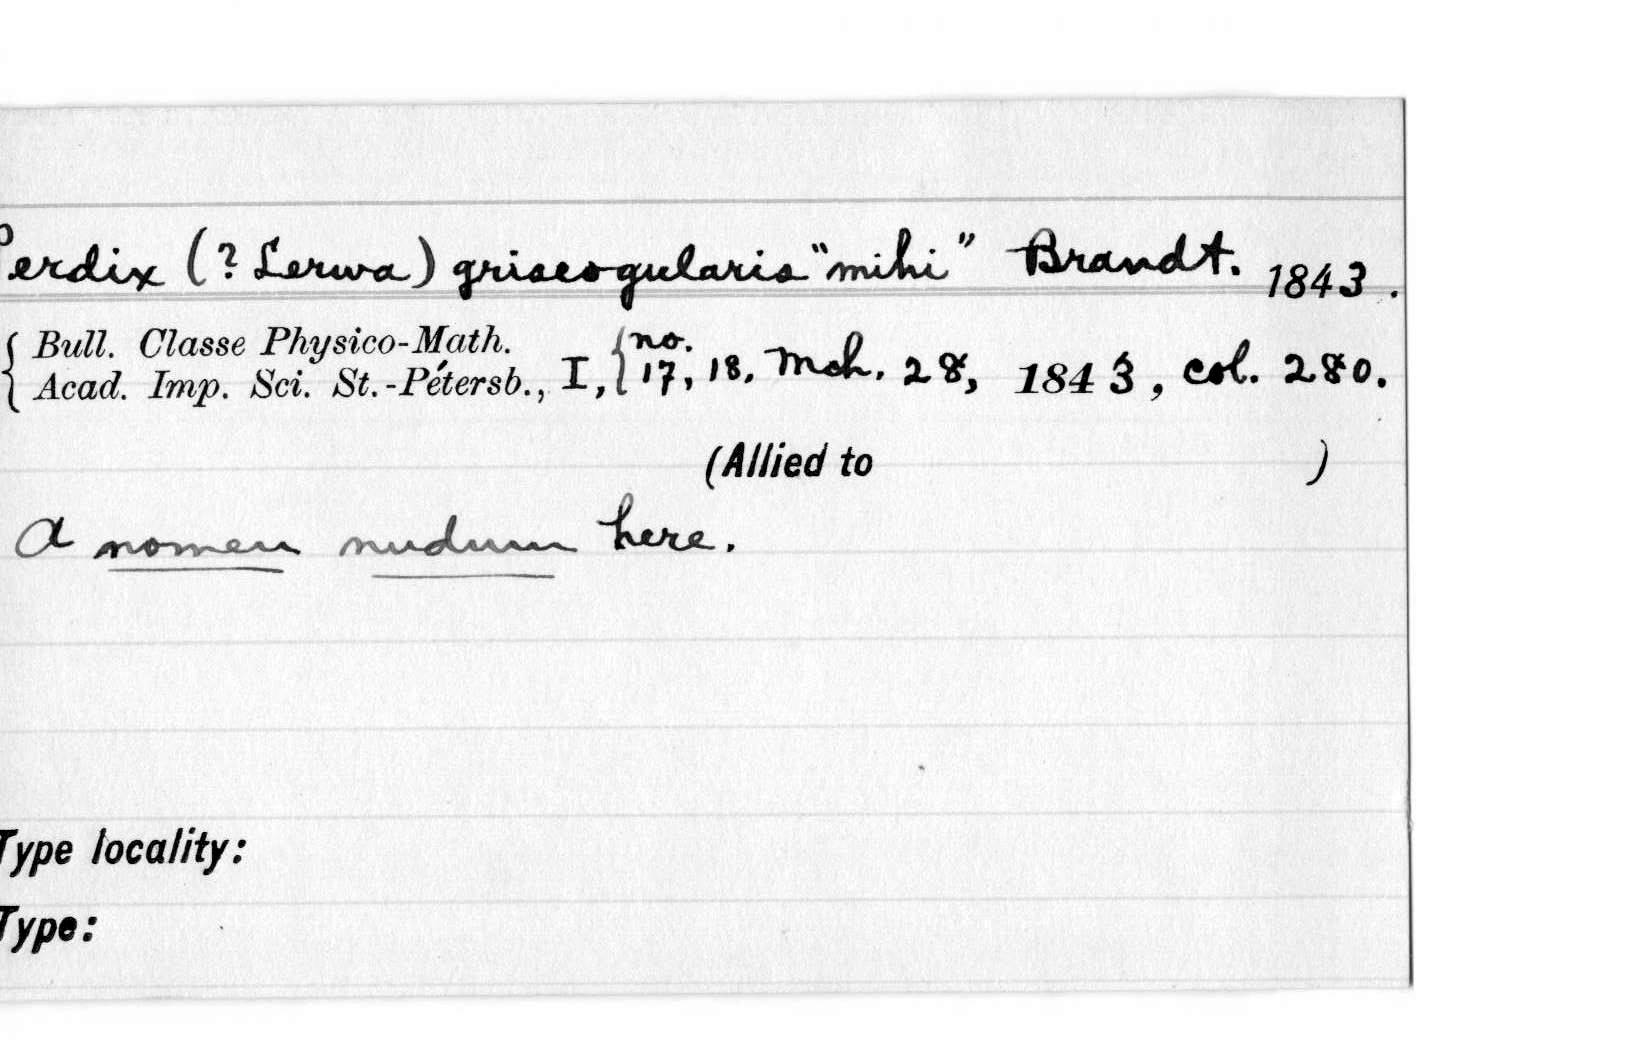 Perdix (? Lerwa) griseogularis "mihi" Brandt. 1843.
{ Bull. Classe Physico-Math.
Acad. Imp. Sci. St.-Pétersb., I, { no. 17, 18, Mch. 28, 1843, col. 280.
(Allied to )
A nomen nudum here.
Type locality:
Type: